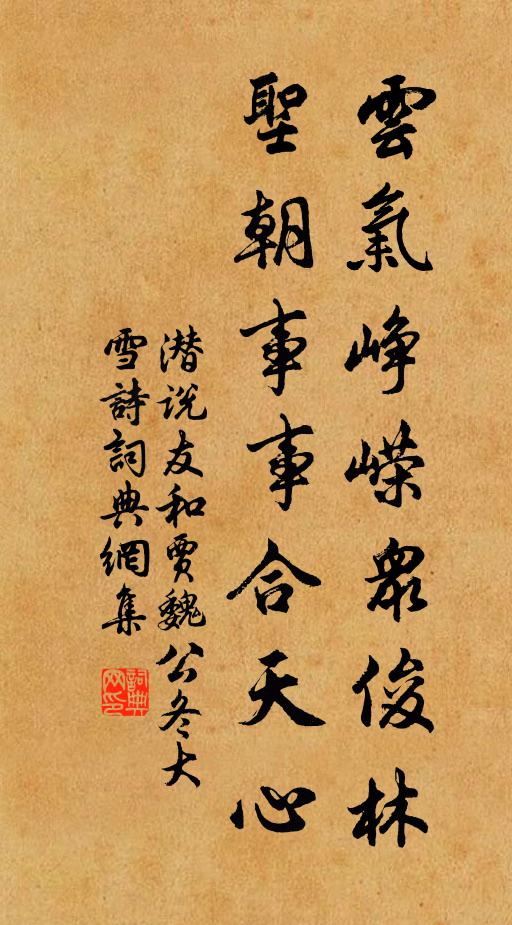 雲氣崢嶸眾俊林
聖朝事事合天心
潜说友和贾魏公冬大
雪詩詞典網集
詞典
网印